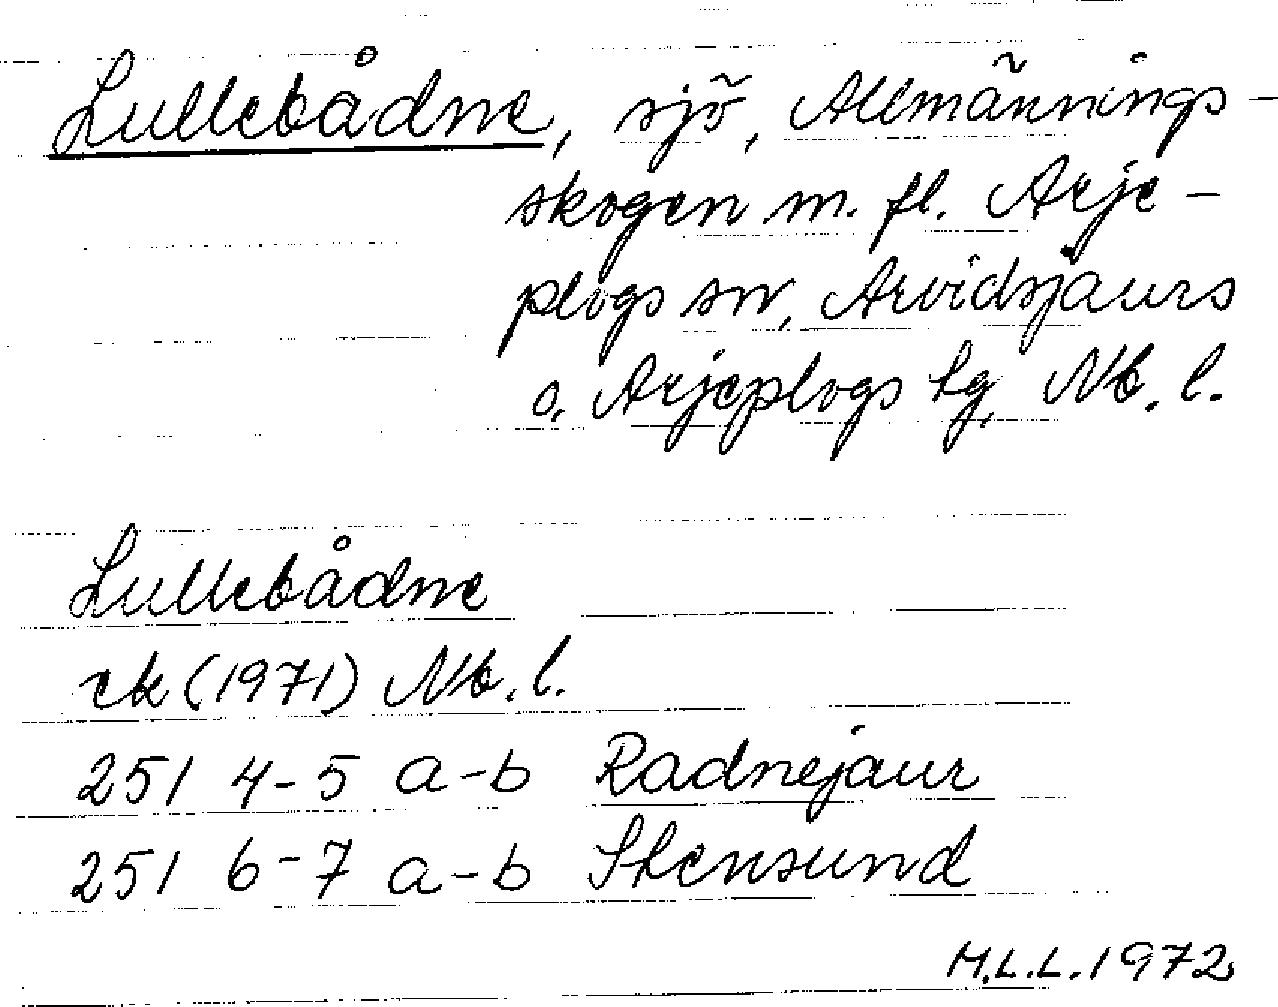 Lullebådne, sjö, Allmännings-
skogen m. fl. Arje-
plogs sn, Arvidsjaurs
o. Arjeplogs tg, Nb. l.
Lullebådne
ek (1971) Nb. l.
251 4-5 a-b Radnejaur
251 6-7 a-b Stensund
M.L.L. 1972